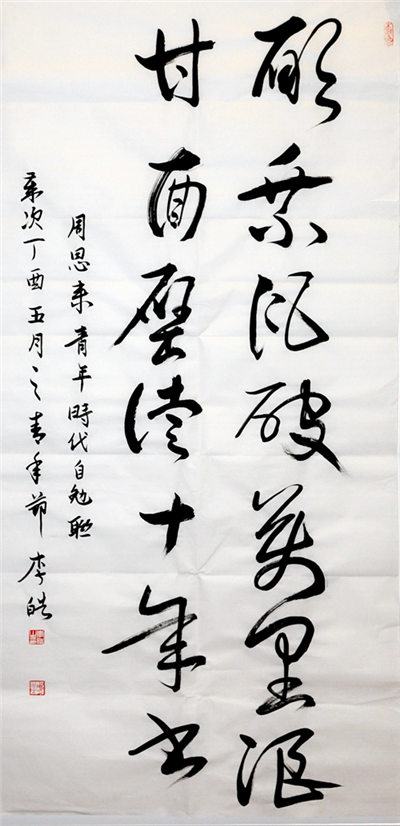 願乘風破萬里浪
甘面壁讀十年書
周恩来青年時代自勉聯
歲次丁酉五月之青年節 李皓